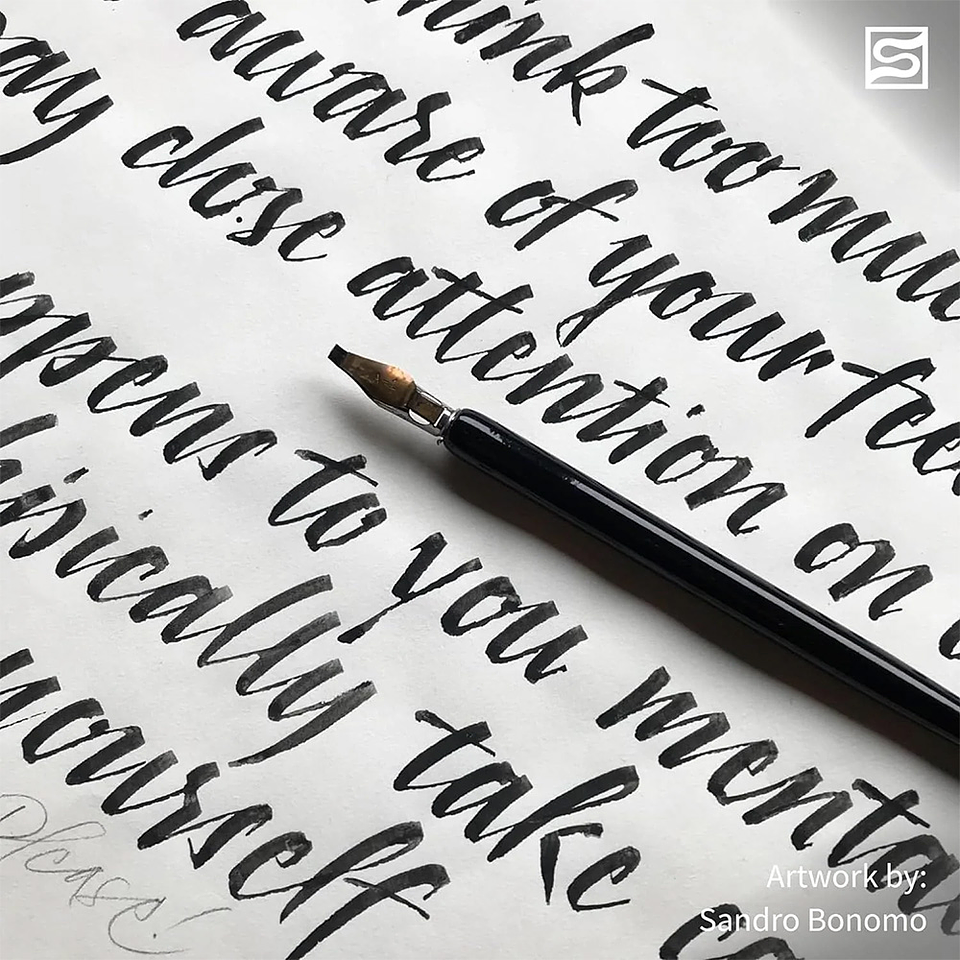 hink too mu
aware of your fee
ay close attention on
ppens to you menta
hisically take ca
yourself
Please!
S
Artwork by:
Sandro Bonomo